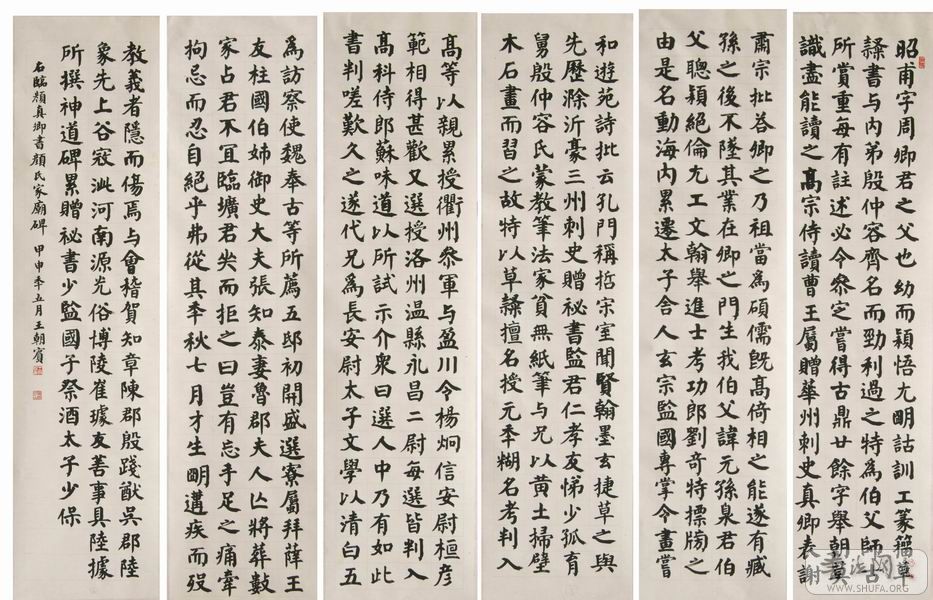 昭甫字周卿君之父也幼而穎悟尤明詁訓工篆籀草
隸書与內弟殷仲容齊名而勁利過之特為伯父師古
所賞重每有註述必令叅定嘗得古鼎廿餘字舉朝莫
識盡能讀之高宗侍讀曹王屬贈華州刺史真卿表謝
肅宗批荅卿之乃祖當為碩儒既高倚相之能遂有臧
孫之後不墜其業在卿之門生我伯父諱元孫泉君伯
父聰穎絕倫尤工文翰舉進士考功郎劉奇特摽牓之
由是名動海內累遷太子舍人玄宗監國專掌令畫嘗
和遊苑詩批云孔門稱哲宗室聞賢翰墨玄捷草之與
先歷滁沂豪三州刺史贈祕書監君仁孝友悌少孤育
舅殷仲容氏蒙教筆法家貧無紙筆与兄以黃土掃壁
木石畫而習之故特以草隸擅名授元秊糊名考判入
高等以親累授衢州叅軍与盈川令楊炯信安尉桓彥
範相得甚歡又選授洛州温縣永昌二尉每選皆判入
高科侍郎蘇味道以所試示介眾曰選人中乃有如此
書判嗟歎久之遂代兄為長安尉太子文學以清白五
為訪察使魏奉古等所薦五邸初開盛選寮屬拜薛王
友柱國伯姊御史大夫張知泰妻魯郡夫人亾將葬數
家占君不宜臨壙君哭而拒之曰豈有忘手足之痛牽
拘忌而忍自絕乎弗從其秊秋七月才生明遘疾而歿
教義者隱而傷焉与會稽賀知章陳郡殷踐猷吳郡陸
象先上谷寇泚河南源光俗博陵崔璩友善事具陸據
所撰神道碑累贈祕書少監國子祭酒太子少保
右臨顏真卿書顏氏家廟碑 甲申秊五月王朝賓
WWW.SHUFA.ORG